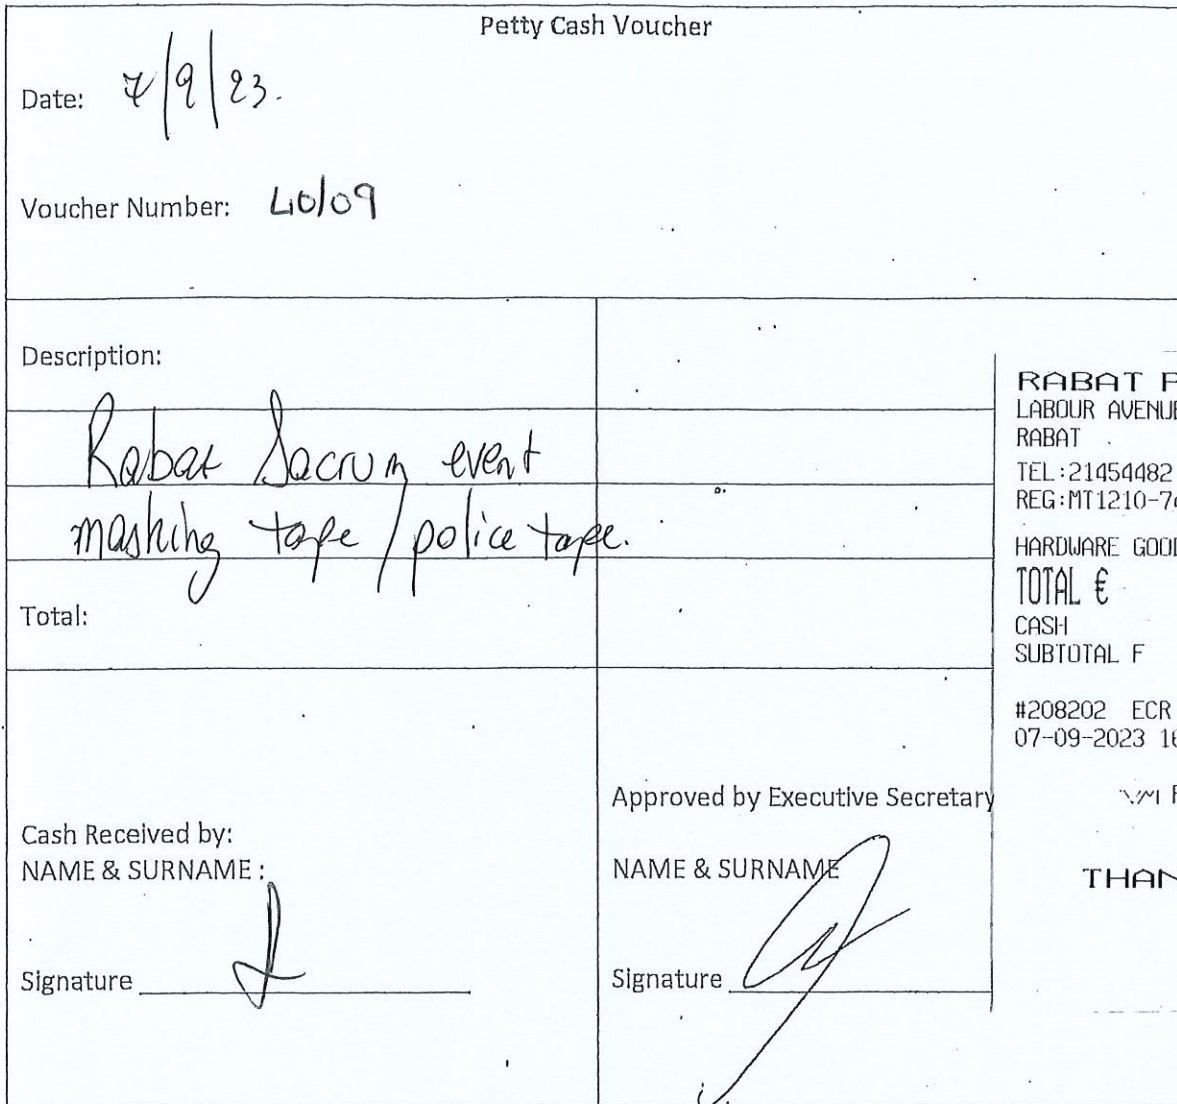 Petty Cash Voucher
Date: 7/9/23.
Voucher Number: 40/09
Description:
Rabat Sacrum event
masking tape / police tape.
Total:
Cash Received by:
NAME & SURNAME :
Signature
Approved by Executive Secretary
NAME & SURNAME
Signature
RABAT P
LABOUR AVENUE
RABAT
TEL:21454482
REG:MT1210-74
HARDWARE GOOD
TOTAL €
CASH
SUBTOTAL F
#208202 ECR
07-09-2023 16
THAN